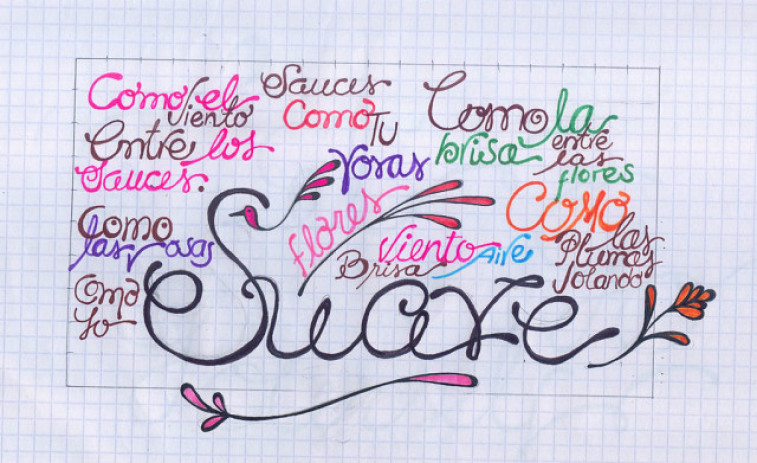 Como el
Viento
Entre los
Sauces.
Sauces
Como
Tu
Como la
brisa entre
las
flores
rosas
flores
Como
las rosas
Como
las
Plumas
Volando
Viento
Aire
Brisa
Como
yo
Suave